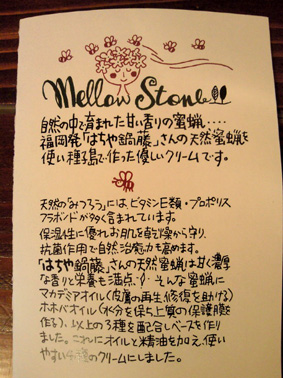 Mellow Stone
自然の中で育まれた甘い香りの蜜蝋‥‥
福岡発「はちや鍋藤」さんの天然蜜蝋を
使い種子島で作った優しいクリームです。
天然の「みつろう」には、ビタミンE類・プロポリス
フラボンドが多く含まれています。
保湿性に優れお肌を乾燥から守り、
抗菌作用で自然治癒力を高めます。
「はちや鍋藤」さんの天然蜜蝋は甘く濃厚
な香りと栄養も満点、そんな蜜蝋に
マカデミアオイル(皮膚の再生、修復を助ける)
ホホバオイル(水分を保ち上質の保護膜を
作る)、以上の3種を配合しベースを作り
ました。これにオイルと精油を加え、使い
やすい のクリームにしました。